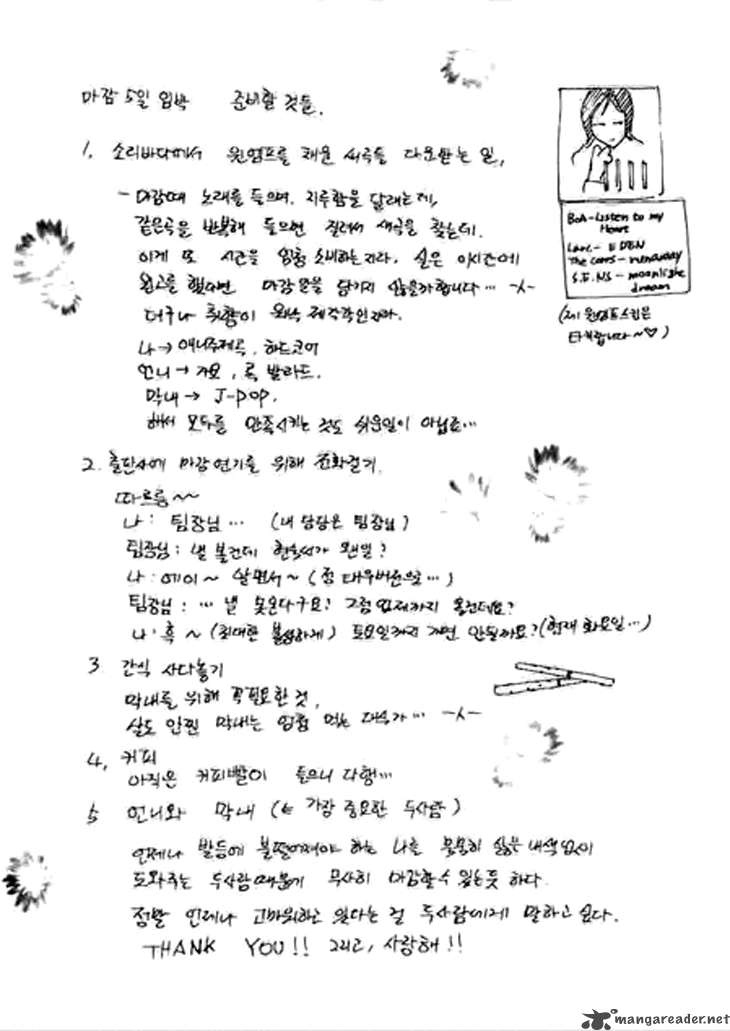 마감 5일 임박 준비할 것들.
1. 소리바다에서 윈엠프를 채울 새곡들 다운받는 일.
- 마감때 노래를 들으며, 지루함을 달래는데,
같은곡을 반복해 들으면 질려서 새곡을 찾는데.
이게 또 시간을 엄청 소비하는지라. 실은 이시간에
원고를 했다면 마감 을 넘기지 않을까합니다… -ㅅ-
더구나 취향이 워낙 제각각인지라.
나 → 애니주제곡, 하드코어
언니 → 가요, 록 발라드.
막내 → J-POP.
해서 모두를 만족시키는 것도 쉬운일이 아닙죠…
2. 출판사에 마감 연기를 위해 전화걸기.
따르릉~~
나: 팀장님… (내 담당은 팀장님)
팀장님: 낼 볼건데 현숙씨가 왠일?
나: 에이~ 알면서~ (좀 태우버전으로…)
팀장님: … 낼 못온다구요? 그럼 언제까지 올건데요?
나: 흑~ (최대한 불쌍하게) 토요일까지 가면 안될까요? (현재 화요일…)
3. 간식 사다놓기
막내를 위해 꼭필요한 것.
살도 안찐 막내는 엄청 먹는 대식가… -ㅅ-
4. 커피
아직은 커피빨이 들으니 다행…
5 언니와 막내 (← 가장 중요한 두사람)
언제나 발등에 불떨어져야 하는 나를 묵묵히 싫은 내색 없이
도와주는 두사람 때문에 무사히 마감할 수 있는듯 하다.
정말 언제나 고마워하고 있다는 걸 두사람에게 말하고 싶다.
THANK YOU!! 그리고, 사랑해!!
BoA - Listen to my
Heart
Larc - EDEN
The corrs - runaway
S.E.NS - moonlight
dream
(제 윈엠프스킨은
타케랍니다~♡)
mangareader.net